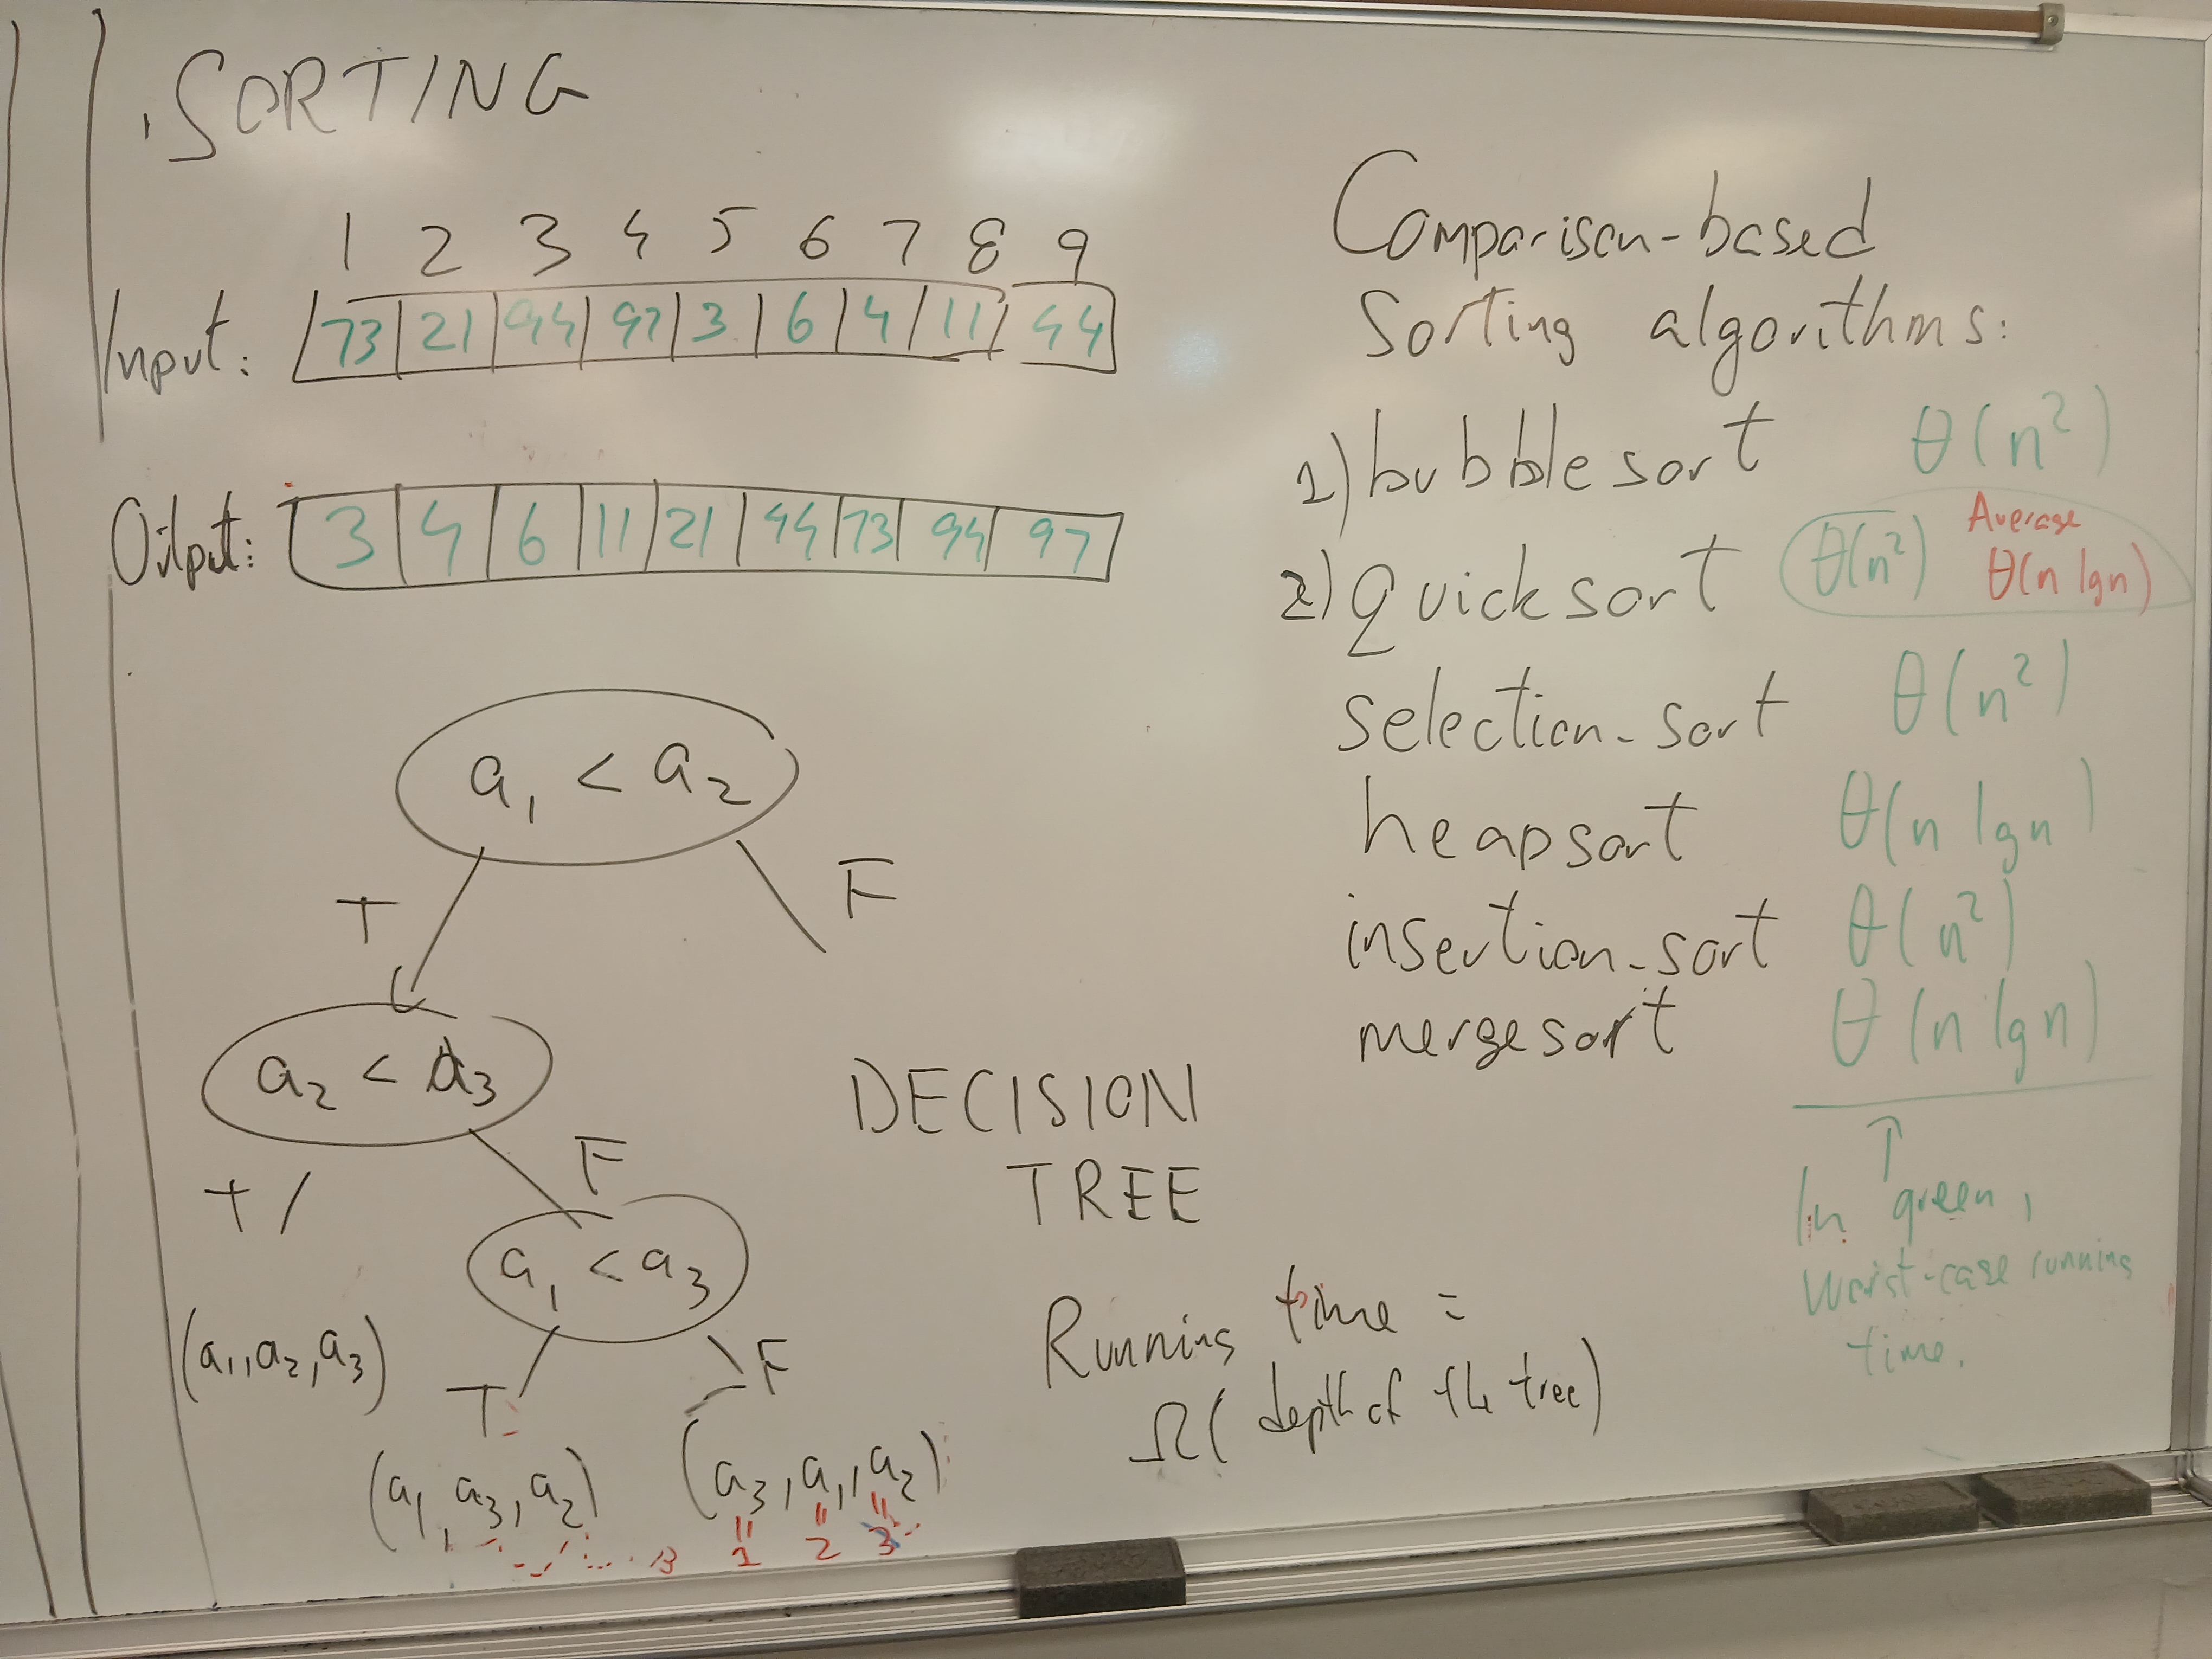 SORTING
1 2 3 4 5 6 7 8 9
Input: 73 21 94 97 3 6 4 11 44
Output: 3 4 6 11 21 44 73 94 97
a₁ < a₂
T F
a₂ < a₃
T F
a₁ < a₃
(a₁, a₂, a₃)
T F
(a₁, a₃, a₂) (a₃, a₁, a₂)
1 2 3
DECISION
TREE
Running time =
Ω( depth of the tree)
Comparison-based
Sorting algorithms:
1) bubblesort θ(n²)
2) quicksort θ(n²) Average θ(n lgn)
selection-sort θ(n²)
heapsort θ(n lgn)
insertion-sort θ(n²)
mergesort θ(n lgn)
In green,
Worst-case running
time.